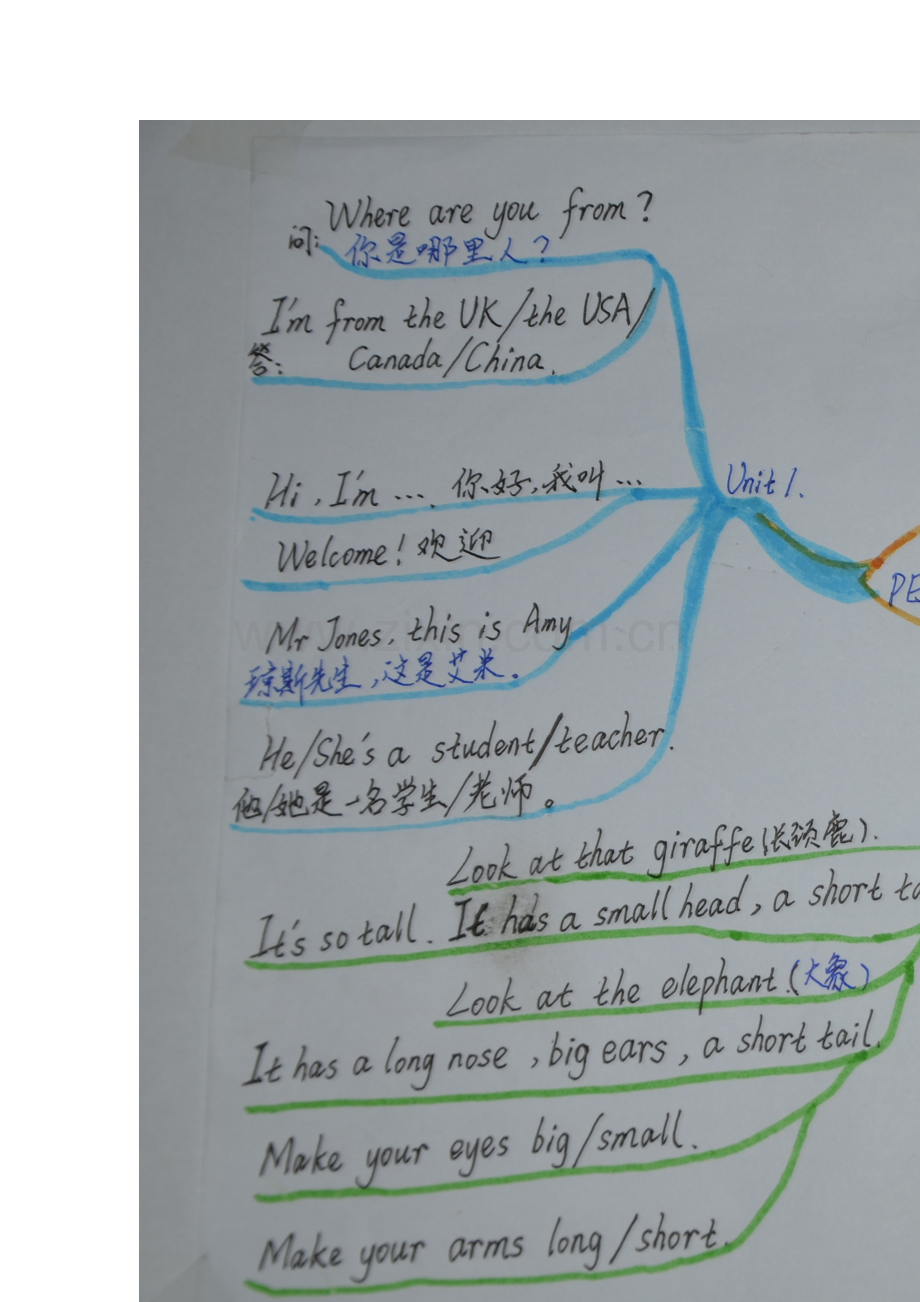 Where are you from?
问: 你是哪里人?
I'm from the UK/the USA/
答: Canada/China.
Hi, I'm ... 你好,我叫...
Unit 1.
Welcome! 欢迎
PE
Mr Jones, this is Amy
琼斯先生,这是艾米。
He/She's a student/teacher.
他/她是一名学生/老师。
Look at that giraffe(长颈鹿).
It's so tall. It has a small head, a short ta
Look at the elephant.(大象)
It has a long nose, big ears, a short tail.
Make your eyes big/small.
Make your arms long/short.